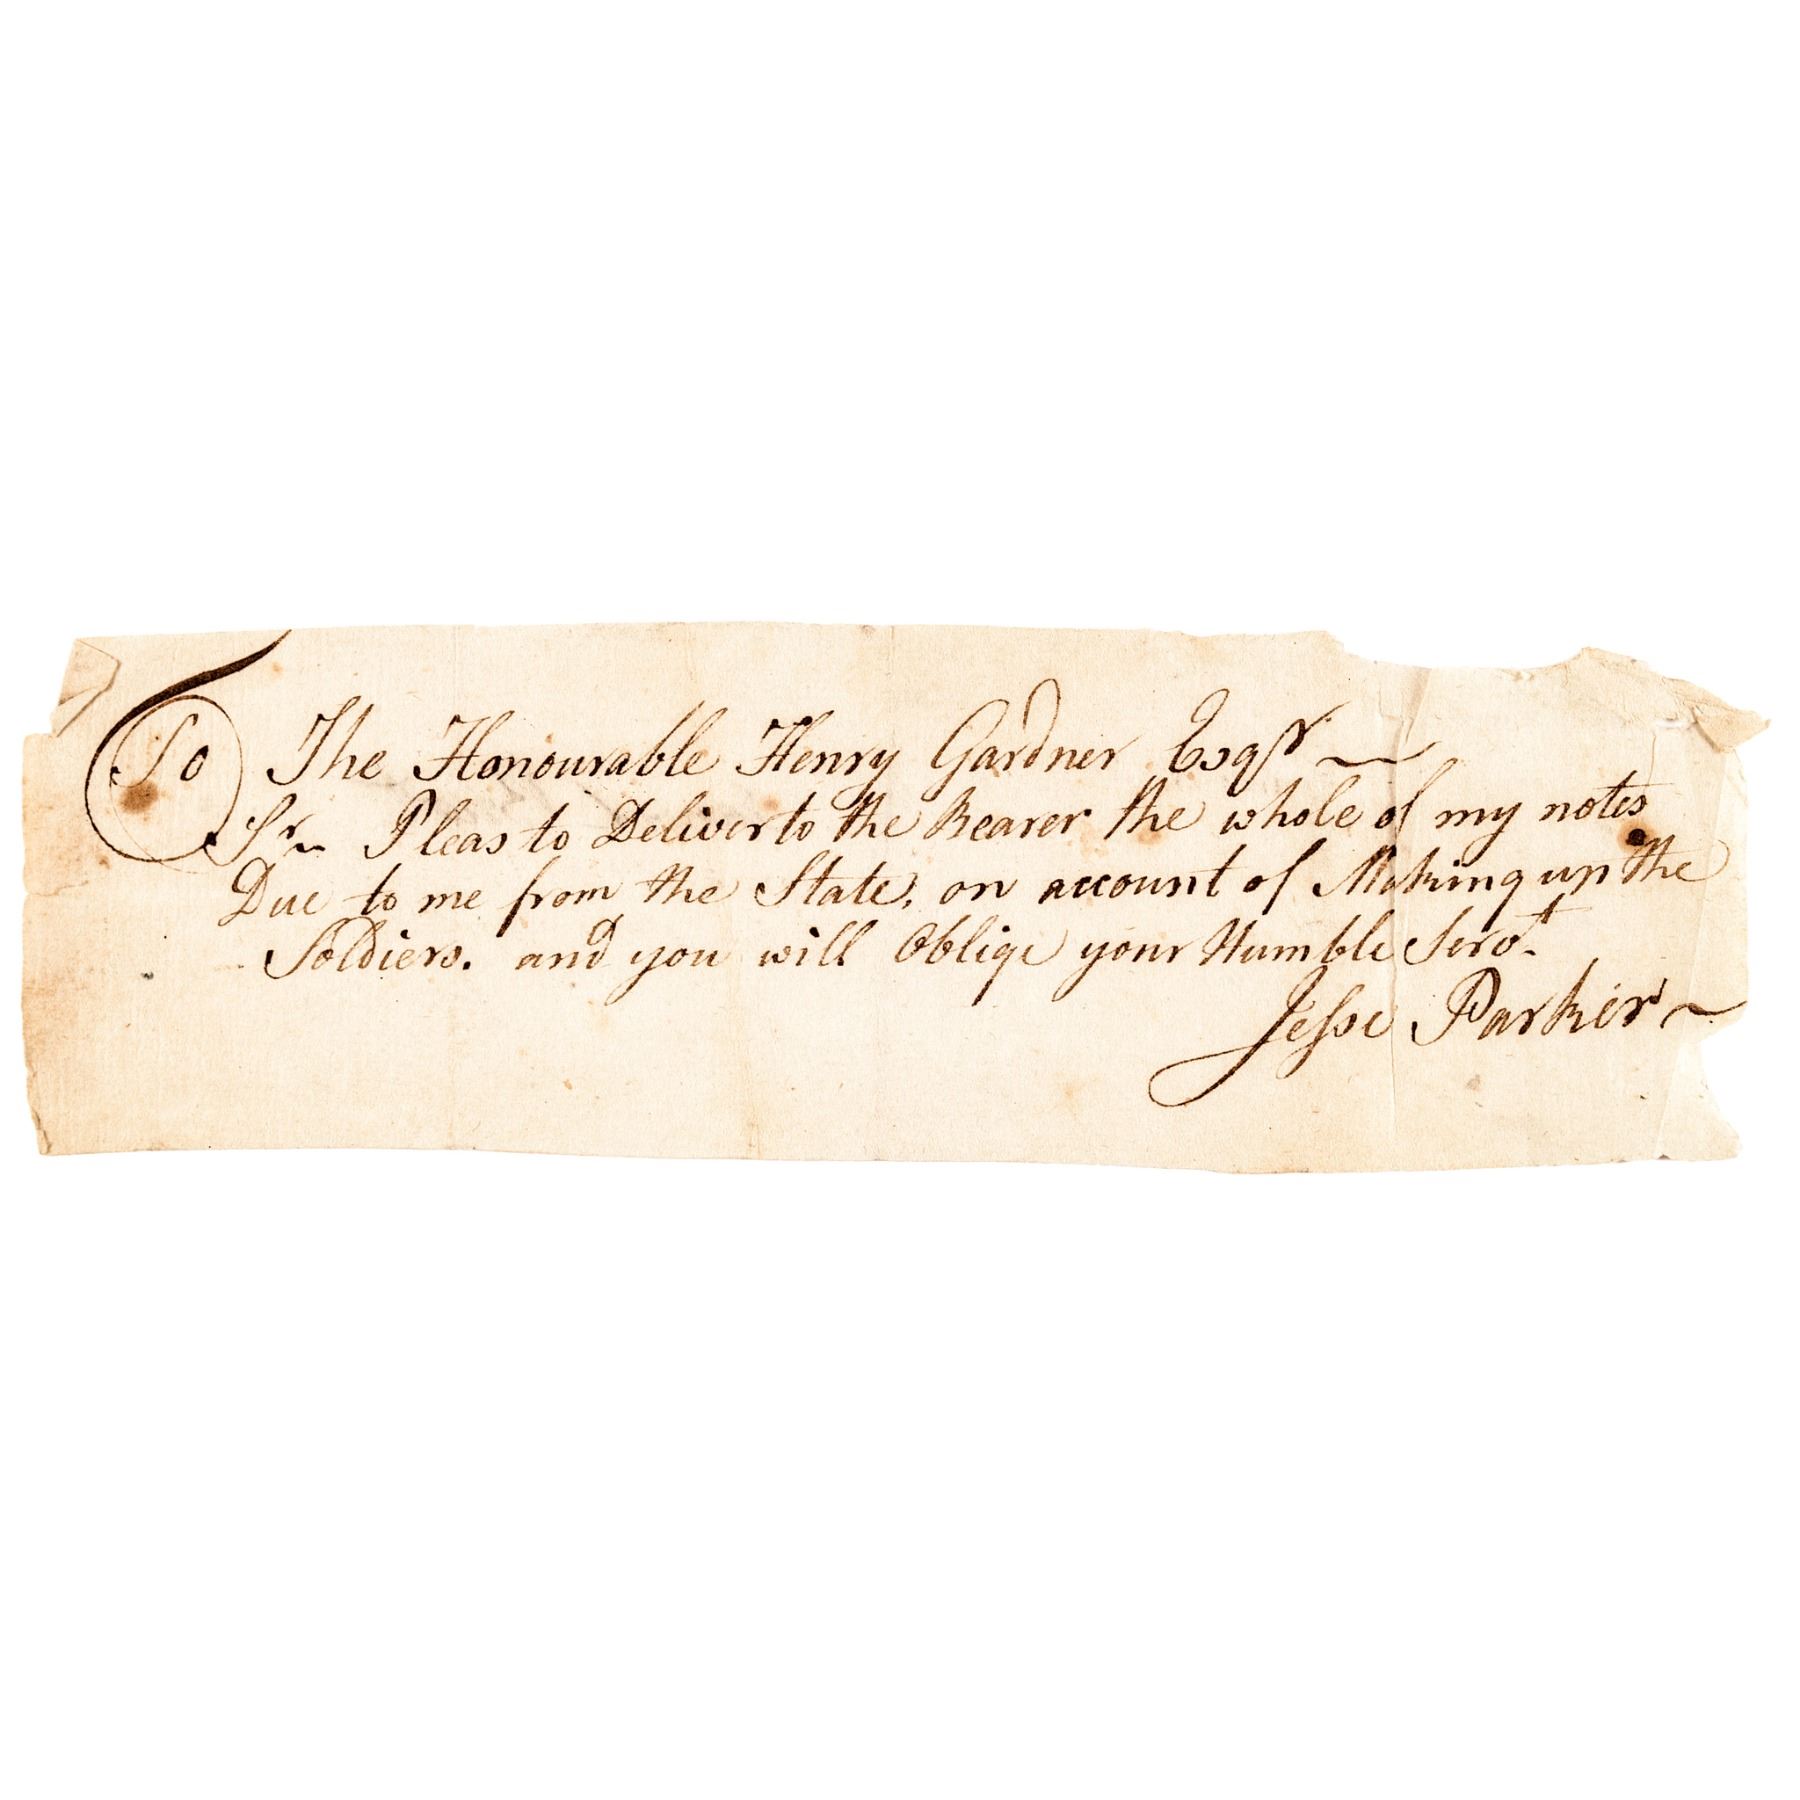 To The Honourable Henry Gardner Esqr
Sr Pleas to Deliver to the Bearer the whole of my notes
Due to me from the State, on account of Making up the
Soldiers. and you will Oblige your Humble Servt.
Jesse Parker